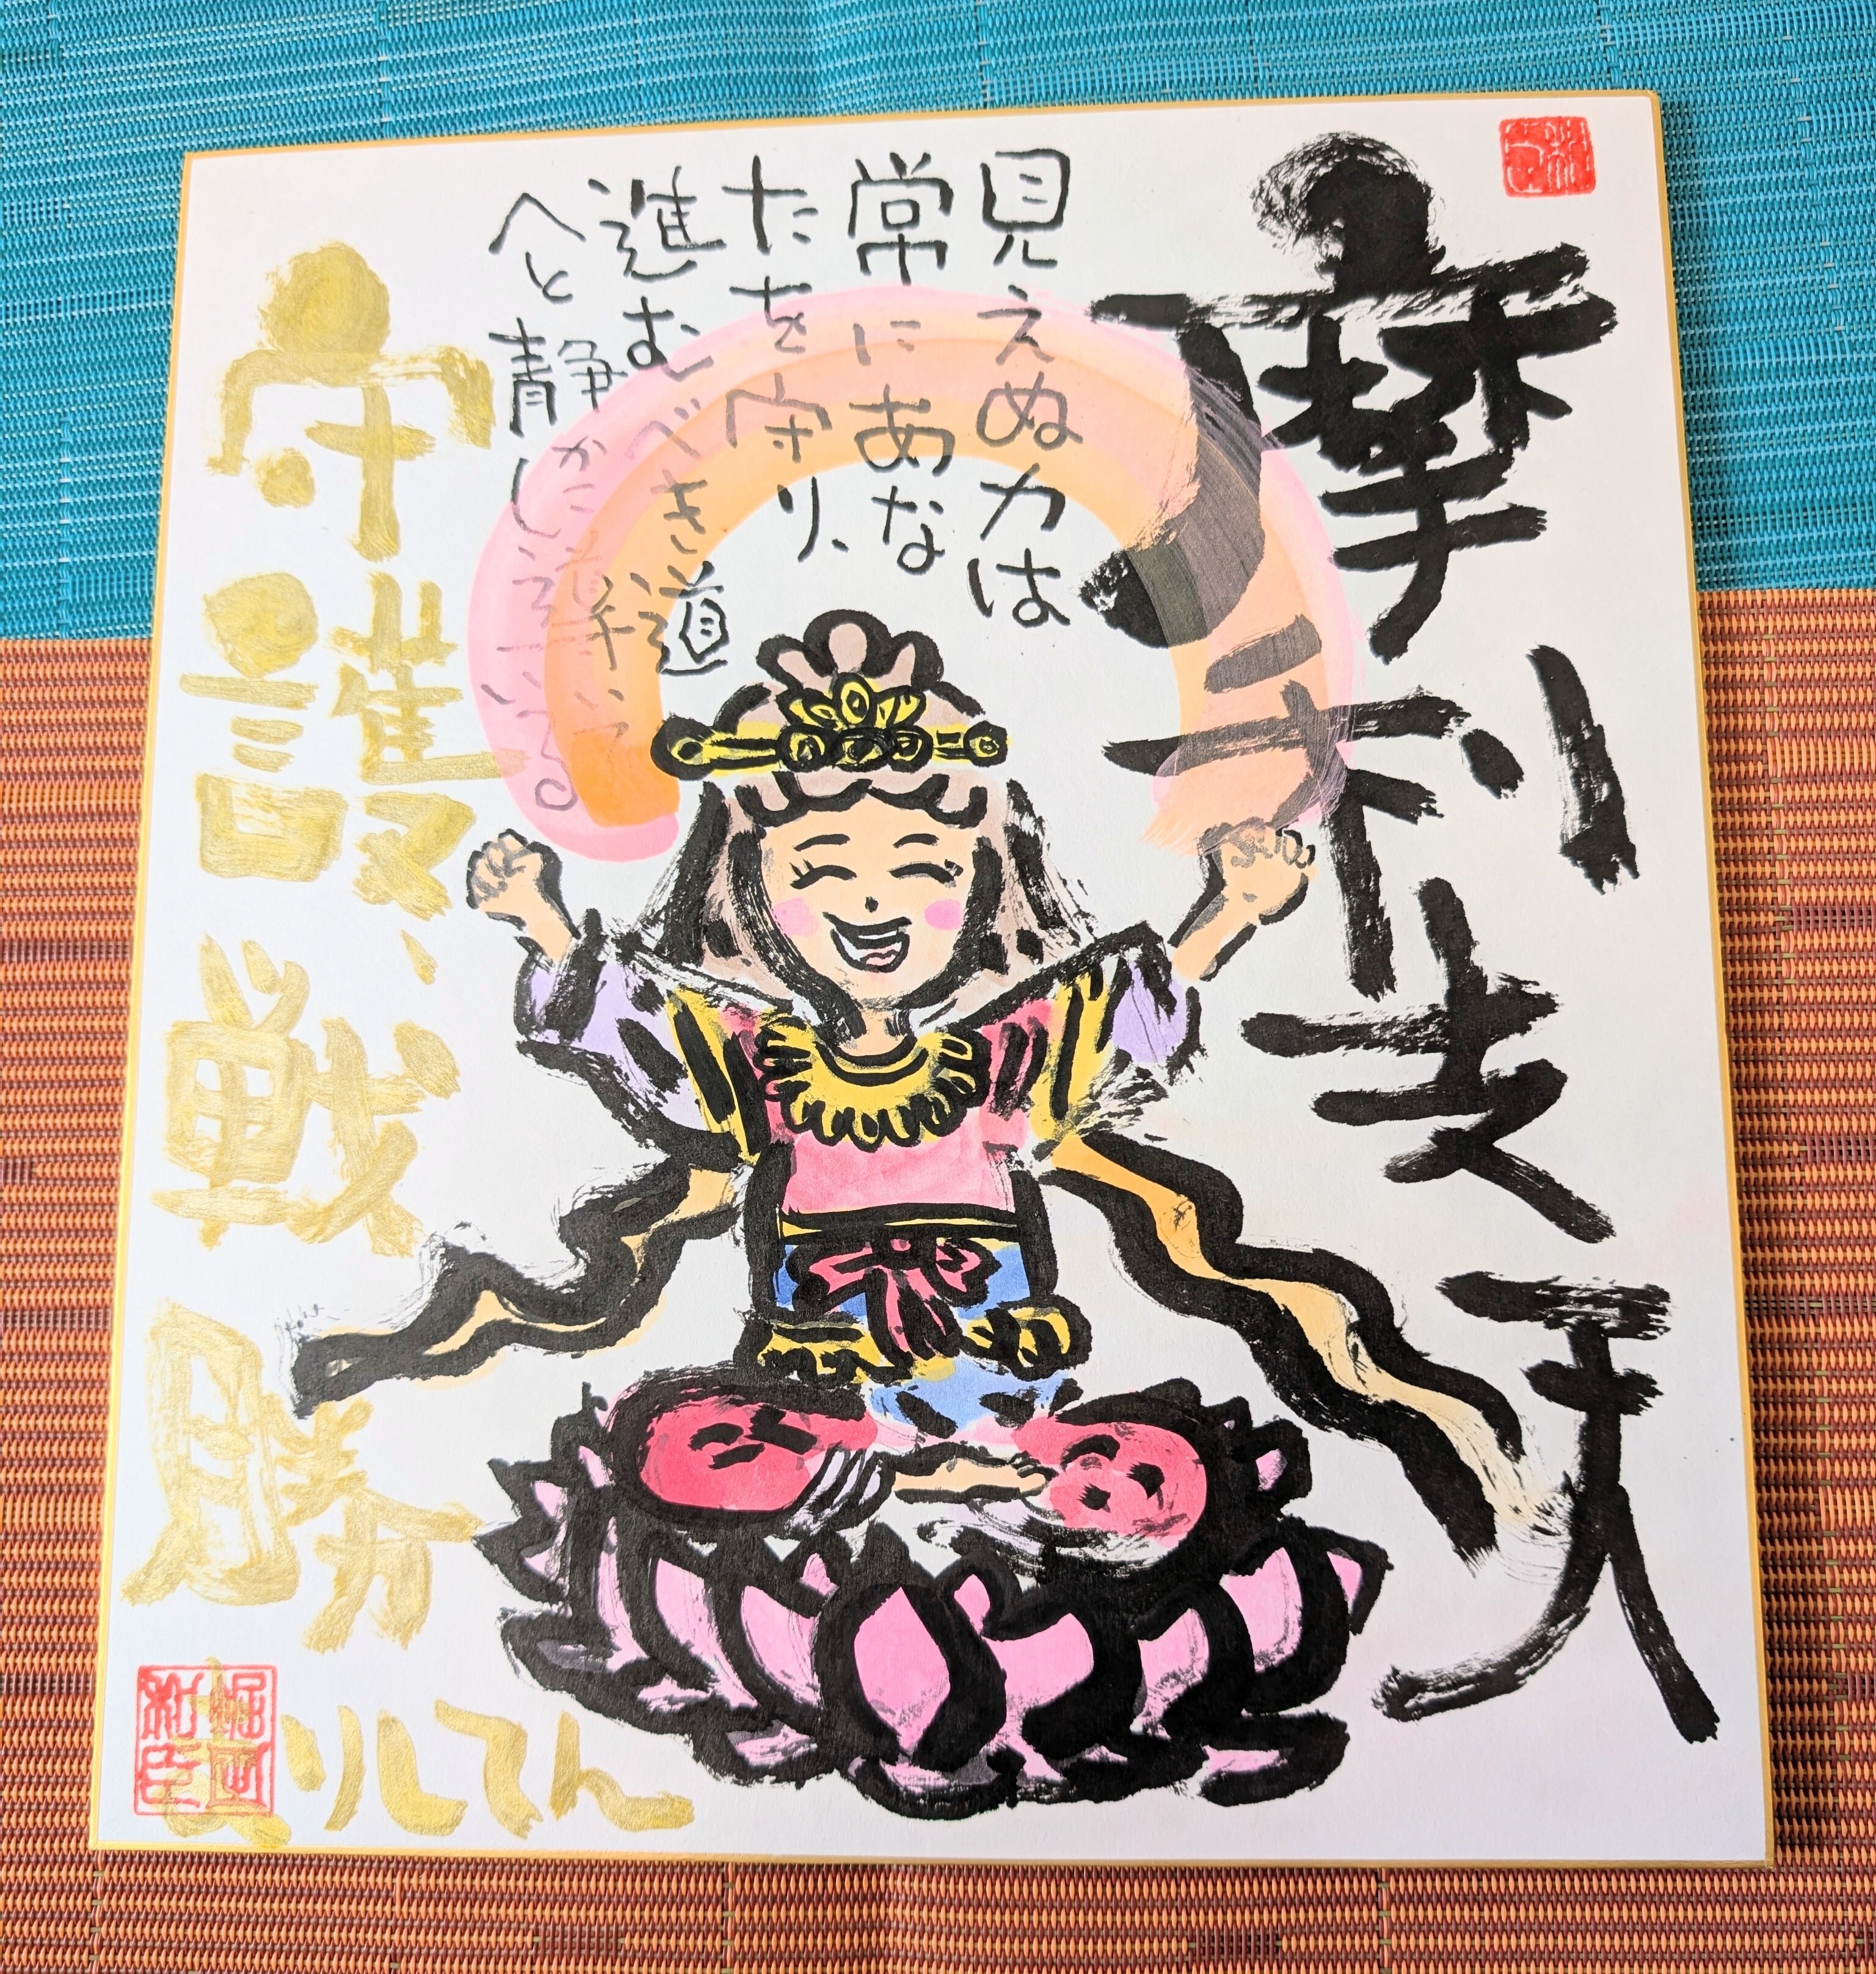 摩利支天
見えぬ力は
常にあな
たを守り、
進むべき道
へと静かに導いている
守護、戦勝
まりしてん
堀口
和臣